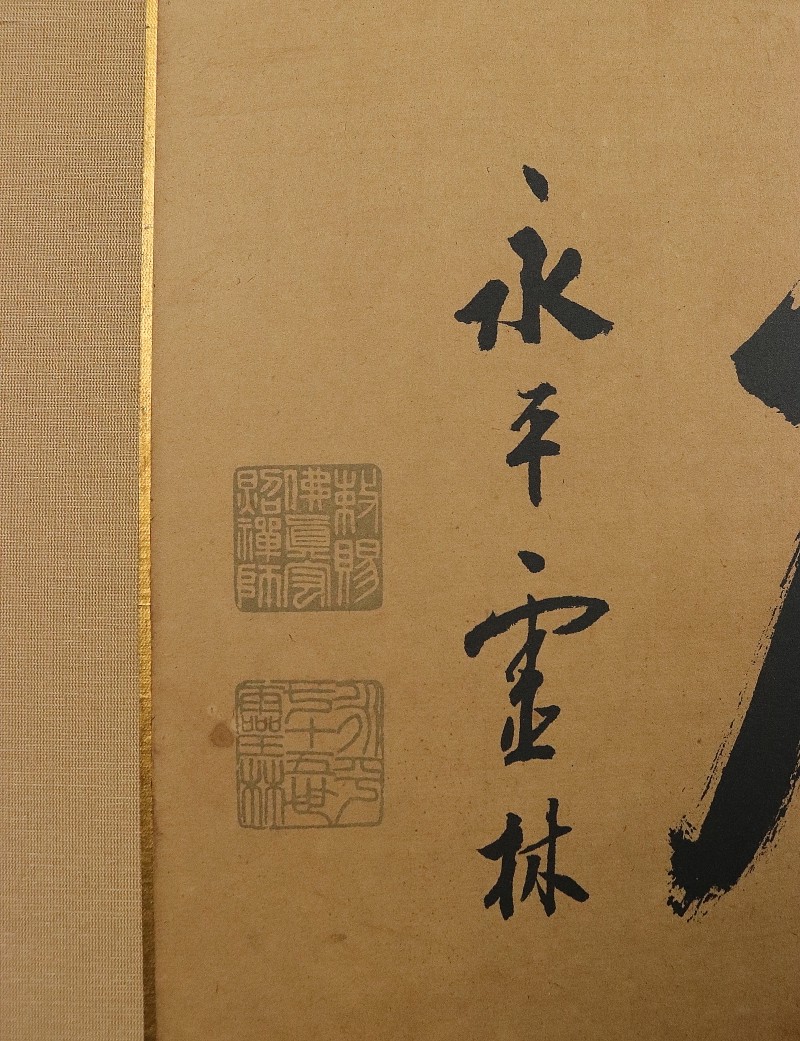 永平霊林
敕賜
佛眞宏
照禪師
永平
七十五世
靈林